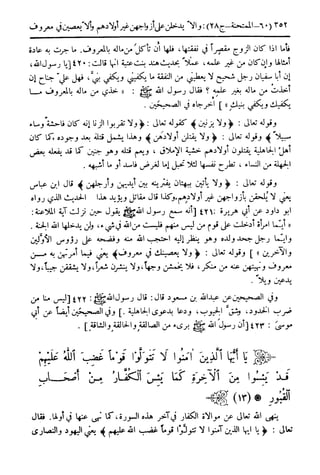 ٣٥٢ (٦٠ - الممتحنة - ج٢٨) : وألا يدخلن على أزواجهن غير أولادهم وألا يعصين في معروف
فأما إذا كان الزوج مقصراً في نفقتها، فلها أن تأكل من ماله بالمعروف. ما جرت به عادة
أمثالها وإن كان من غير علمه، عملاً بحديث هند بنت عتبة أنها قالت: ٤٢٠ [يا رسول الله،
إن أبا سفيان رجل شحيح لا يعطيني من النفقة ما يكفيني ويكفي بَنيَّ، فهل عليّ جناح إن
أخذت من ماله بغير علمه ؟ فقال رسول الله ﷺ : « خذي من ماله بالمعروف مـا
يكفيك ويكفي بنيك » ] أخرجاه في الصحيحين .
وقوله تعالى : ﴿ ولا يزنين ﴾ كقوله تعالى : ﴿ ولا تقربوا الزنا إنه كان فاحشة وساء
سبيلاً ﴾ وقوله تعالى : ﴿ ولا يقتلن أولادهن ﴾ وهذا يشمل قتله بعد وجوده، كما كان
أهل الجاهلية يقتلون أولادهم خشية الإملاق ، ويعم قتله وهو جنين كما قد يفعله بعض
الجهلة من النساء ، تطرح نفسها لئلا تحبل إما لغرض فاسد أو ما أشبهه .
وقوله تعالى : ﴿ ولا يأتين ببهتان يفترينه بين أيديهن وأرجلهن ﴾ قال ابن عباس
يعني لا يُلحقن بأزواجهن غير أولادهم، وكذا قال مقاتل ويؤيد هذا الحديث الذي رواه
أبو داود عن أبي هريرة : ٤٢١ [أنه سمع رسول الله ﷺ يقول حين نزلت آية الملاعنة :
« أيّما امرأة أدخلت على قوم من ليس منهم فليست من الله في شيء، ولن يدخلها الله الجنة .
وأيّما رجل جحد ولده وهو ينظر إليه احتجب الله منه وفضحه على رؤوس الأولين
والآخرين » ] وقوله تعالى : ﴿ ولا يعصينك في معروف ﴾ يعني فيما أمرتهن به مـن
معروف ونهيتهن عنه من منكر، فلا يخمشن وجهاً، ولا ينشرن شعراً، ولا يشققن جيباً، ولا
يدعين ويلاً .
وفي الصحيحين عن عبد الله بن مسعود قال : قال رسول الله ﷺ : ٤٢٢ [ليس منا من
ضرب الخدود، وشق الجيوب، ودعا بدعوى الجاهلية .] وفي الصحيحين أيضاً عن أبي
موسى : ٤٢٣ [أن رسول الله ﷺ بريء من الصالقة والحالقة والشاقة .]
يَا أَيُّهَا الَّذِينَ آمَنُوا لَا تَتَوَلَّوْا قَوْماً غَضِبَ اللَّهُ عَلَيْهِمْ
قَدْ يَئِسُوا مِنَ الْآخِرَةِ كَمَا يَئِسَ الْكُفَّارُ مِنْ أَصْحَابِ
الْقُبُورِ (١٣)
ينهى الله تعالى عن موالاة الكفار في آخر هذه السورة، كما نهى عنها في أولها. فقال
تعالى : ﴿ يا أيها الذين آمنوا لا تتولّوا قوماً غضب الله عليهم ﴾ يعني اليهود والنصارى